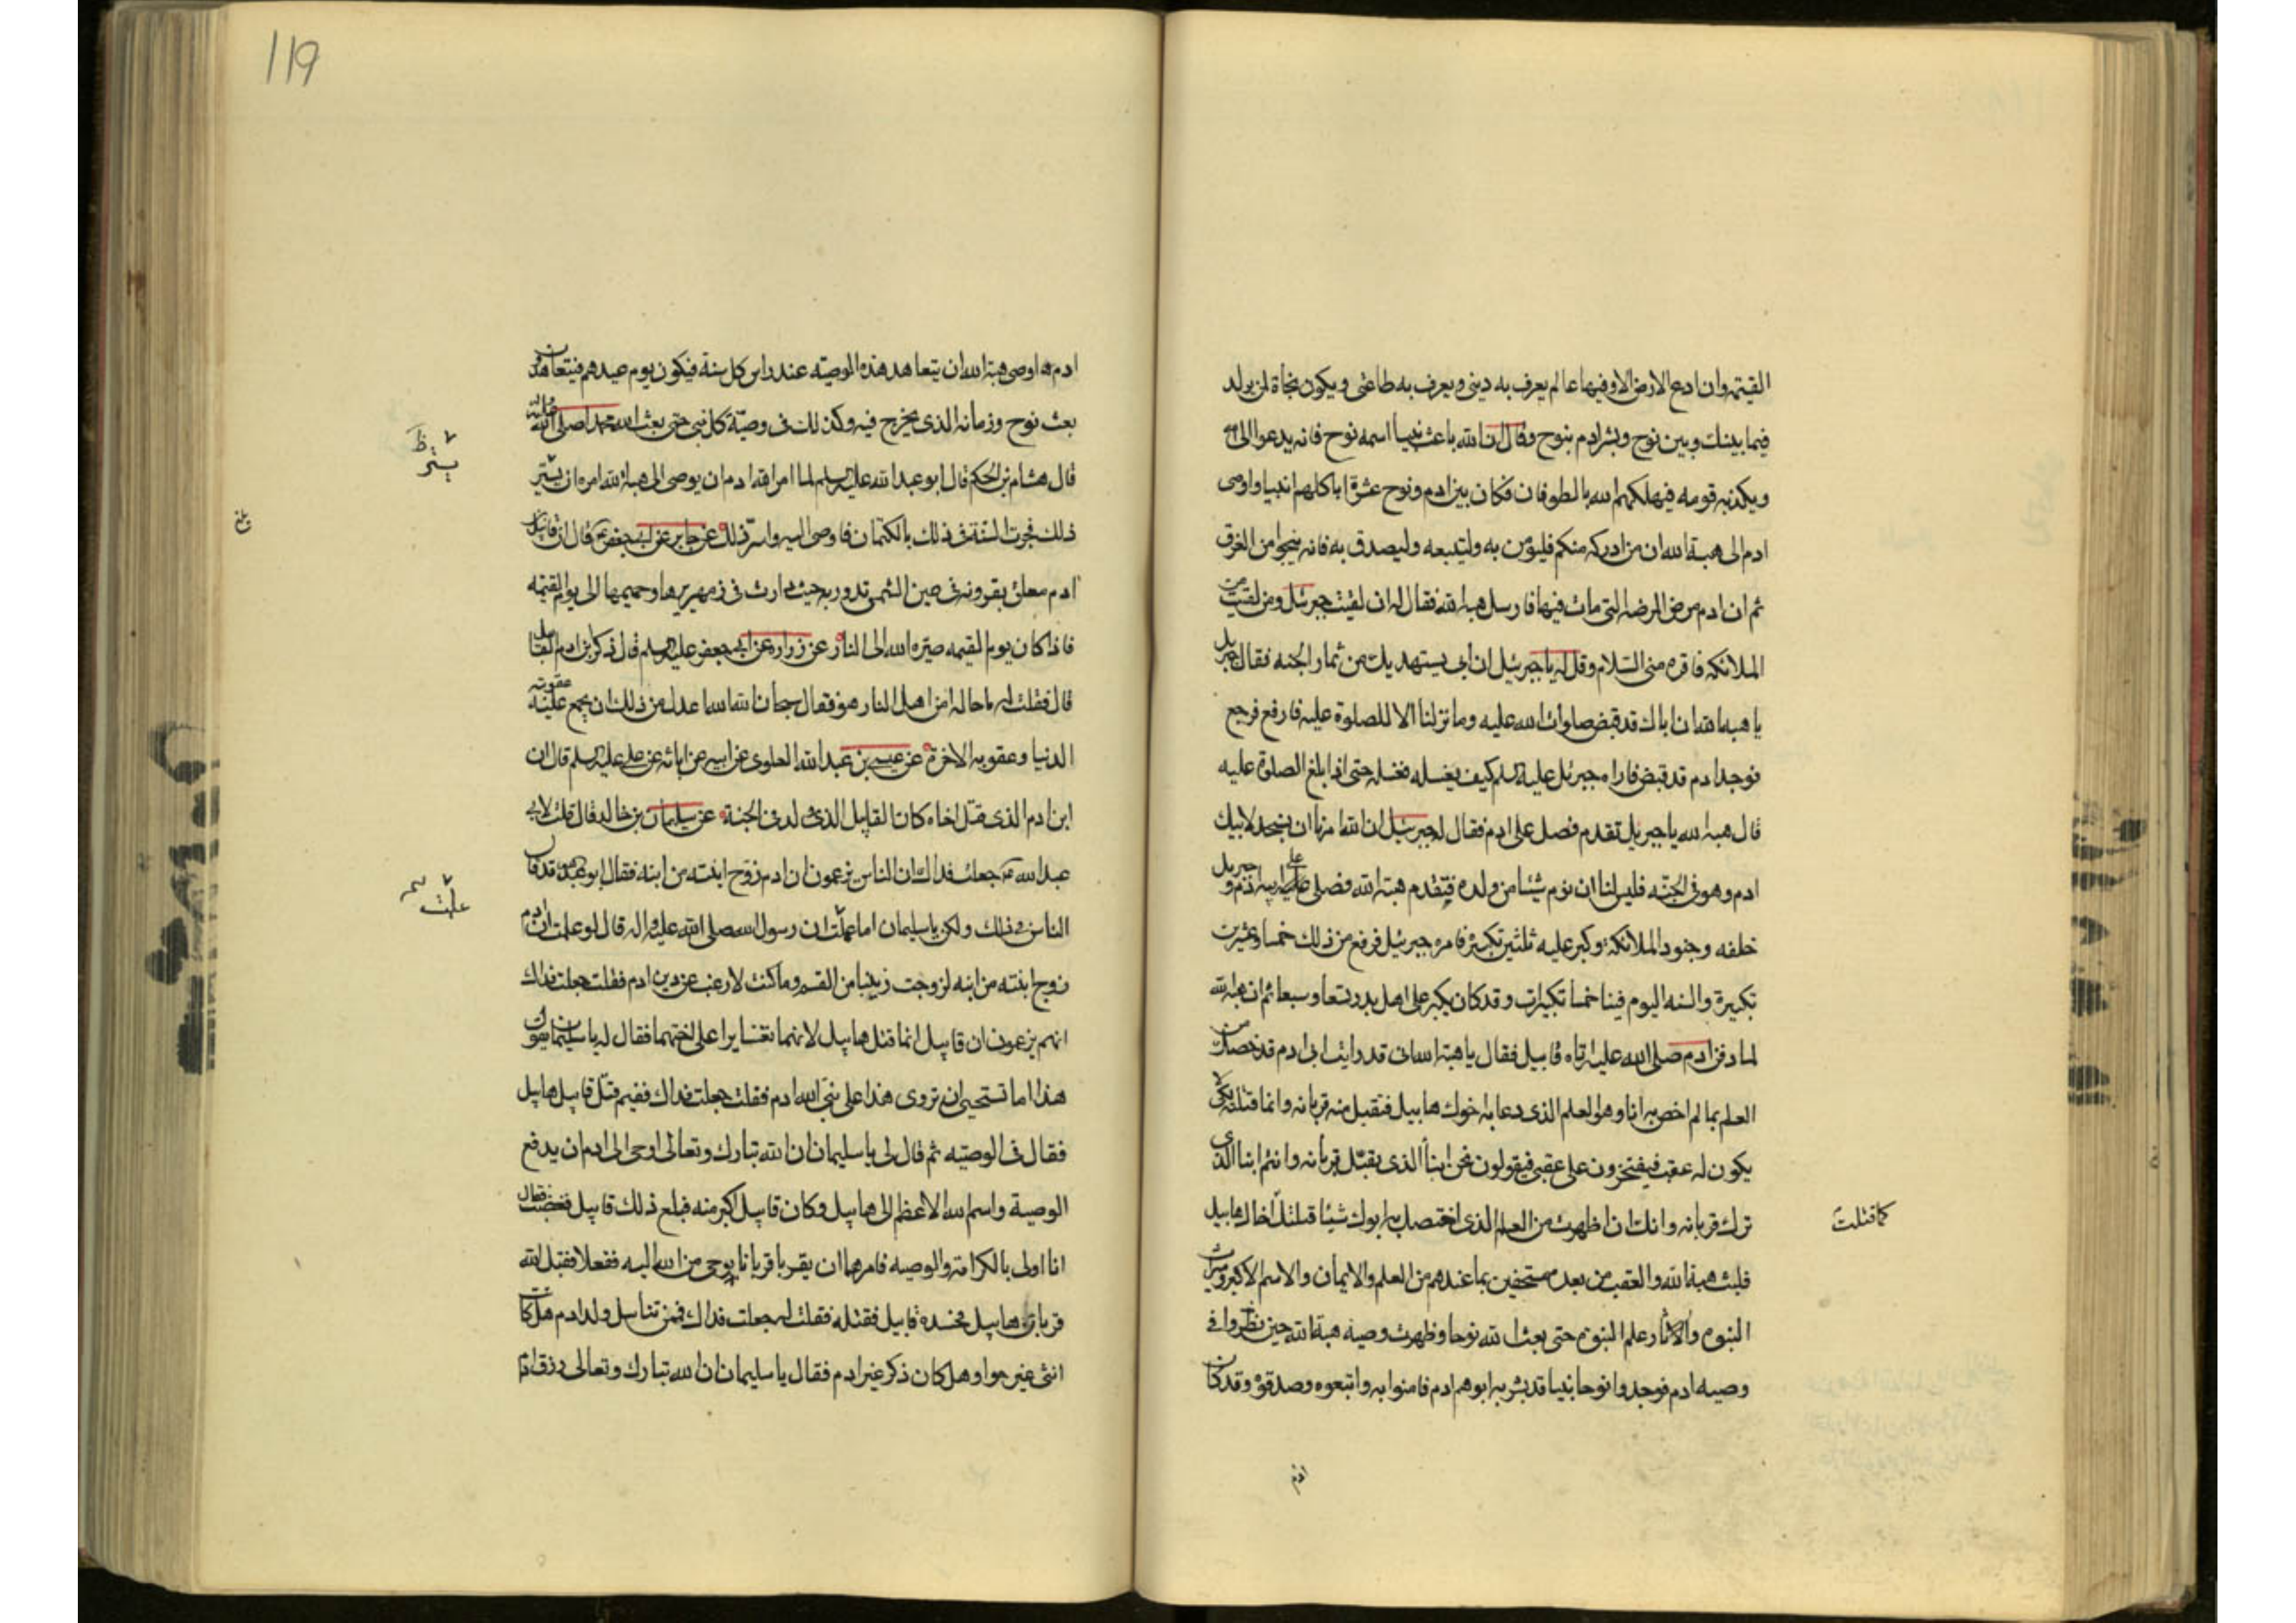 القيمة وان ادع الارض الا وفيها عالم يعرف به ديني ويعرف به طاعتي ويكون نجاة لمن يولد
فيما بينك وبين نوح وبشر ادم بنوح وقال ان الله باعث نبيا اسمه نوح فانه يدعو الى الله
ويكذبه قومه فيهلكهم الله بالطوفان فكان بين ادم ونوح عشرة اباء كلهم انبيا واوصى
ادم الى هبة الله ان من ادركه منكم فليؤمن به وليتبعه وليصدق به فانه ينجو من الغرق
ثم ان ادم مرض المرضه التي مات فيها فارسل هبة الله فقال له ان لقيت جبرئيل ومن لقيت من
الملائكه فاقره مني السلام وقل له يا جبرئيل ان ابي يستهديك من ثمار الجنه فقال جبريل
يا هبه الله ان اباك قد قبض صلوات الله عليه وما نزلنا الا للصلوة عليه فارفع فرجع
فوجد ادم قد قبض فاراه جبرئيل عليه السلم كيف يغسله فغسله حتى اذا بلغ الصلوة عليه
قال هبه الله يا جبريل تقدم فصل على ادم فقال له جبرئيل ان الله امرنا ان نسجد لابيك
ادم وهو في الجنه فليس لنا ان نوم شيئا من ولده فيتقدم هبة الله فصلى على ابيه ادم وجبريل
خلفه وجنود الملائكة وكبر عليه ثلثين تكبيرة فامره جبرئيل فرفع من ذلك خمسا وعشرين
تكبيرة والسنه اليوم فينا خمسا تكبيرات وقد كان يكبر على اهل بدر تسعا وسبعا ثم ان هبة الله
لما دفن ادم صلى الله عليه اتاه قابيل فقال يا هبة الله اني قد رايت ابي ادم قد خصك من
العلم بما لم اخص به انا وهو العلم الذي دعا به اخوك هابيل فتقبل منه قربانه وانما قتلته لكيلا
يكون له عقب فيفتخرون على عقبي فيقولون نحن ابناء الذي يقبل قربانه وانتم ابنا الذي
ترك قربانه وانك ان اظهرت من العلم الذي اختصك به ابوك شيئا قتلتك اخاك هابيل
كما قتلت
فلبث هبة الله والعقب من بعده مستخفين بما عندهم من العلم والايمان والاسم الاكبر وميراث
النبوه والاثار علم النبوه حتى بعث الله نوحا وظهرت وصيه هبة الله حين نظروا في
وصيه ادم فوجدوا نوحا نبيا قد بشر به ابوهم ادم فامنوا به واتبعوه وصدقوه وقد كان
ادم
119
ادم اوصى هبة الله ان يتعاهد هذه الوصيه عند راس كل سنة فيكون يوم عيدهم فيتعاهدون
بعث نوح وزمانه الذي يخرج فيه وكذلك في وصية كل نبي حتى بعث الله محمدا صلى الله عليه واله
قال هشام بن الحكم قال ابو عبد الله عليه السلم لما امر الله ادم ان يوصي الى هبة الله امره ان يستر
يستر ظ
ذلك فجرت السنة في ذلك بالكتمان فاوصى اليه واسر ذلك عن جابر عن ابي جعفر قال ان قابيل بن
ادم معلق بقرونه في عين الشمس تدور به حيث دارت في زمهريرها وحميمها الى يوم القيمه
فاذا كان يوم القيمه صيره الله الى النار عن زراره عن ابي جعفر عليه السلم قال ذكر بن ادم القابيل
قال فقلت له ما حاله امن اهل النار هو فقال سبحان الله الله اعدل من ذلك ان يجمع عليه عقوبه
الدنيا وعقوبه الاخرة عن عيسى بن عبد الله العلوي عن ابيه عن ابائه عن علي عليه السلم قال ان
ابن ادم الذي قتل اخاه كان القابيل الذي ولد في الجنة عن سليمان بن خالد قال قلت لابي
عبد الله جعلت فداك ان الناس يزعمون ان ادم زوج ابنته من ابنه فقال ابو عبد الله قد قال
الناس في ذلك ولكن يا سليمان اما علمت ان رسول الله صلى الله عليه واله قال لو علمت ان ادم
علمت
زوج ابنته من ابنه لزوجت زينبا من القسم وما كنت لارغب عن دين ادم فقلت جعلت فداك
انهم يزعمون ان قابيل انما قتل هابيل لانهما تغايرا على اختهما فقال له يا سليمان تقول
هذا اما تستحي ان تروي هذا على نبي الله ادم فقلت جعلت فداك ففيم قتل قابيل هابيل
فقال في الوصيه ثم قال لي يا سليمان ان الله تبارك وتعالى اوحى الى ادم ان يدفع
الوصية واسم الله الاعظم الى هابيل وكان قابيل اكبر منه فبلغ ذلك قابيل فغضب فقال
انا اولى بالكرامة والوصيه فامرهما ان يقربا قربانا بوحي من الله اليه ففعلا فقبل الله
قربان هابيل فحسده قابيل فقتله فقلت له جعلت فداك فممن تناسل ولد ادم هل كانت
انثى غير حوا وهل كان ذكر غير ادم فقال يا سليمان ان الله تبارك وتعالى رزق ادم